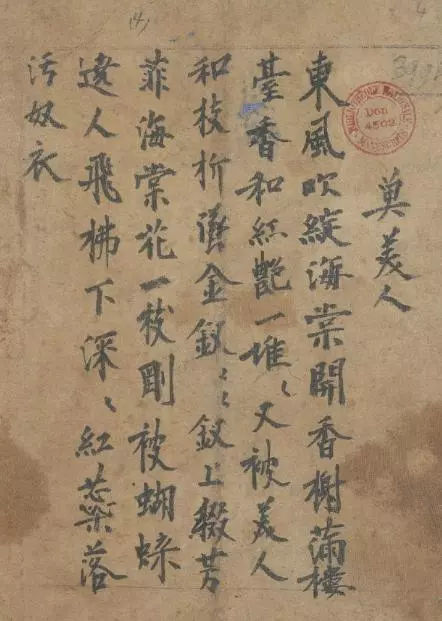 魚美人
東風吹綻海棠開香榭滿樓
臺香和紅艷一堆〻又被美人
和枝折墜金釵〻釵上綴芳
菲海棠花一枝剛被蝴蝶
遶人飛拂下深〻紅蕊落
污奴衣
(4)
DON
4502